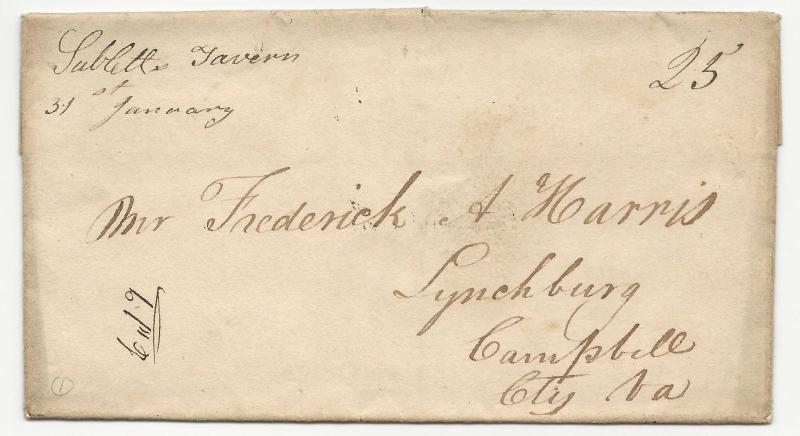 Subletts Tavern
25
31st January
Mr Frederick A Harris
Lynchburg
Campbell
Cty Va
1